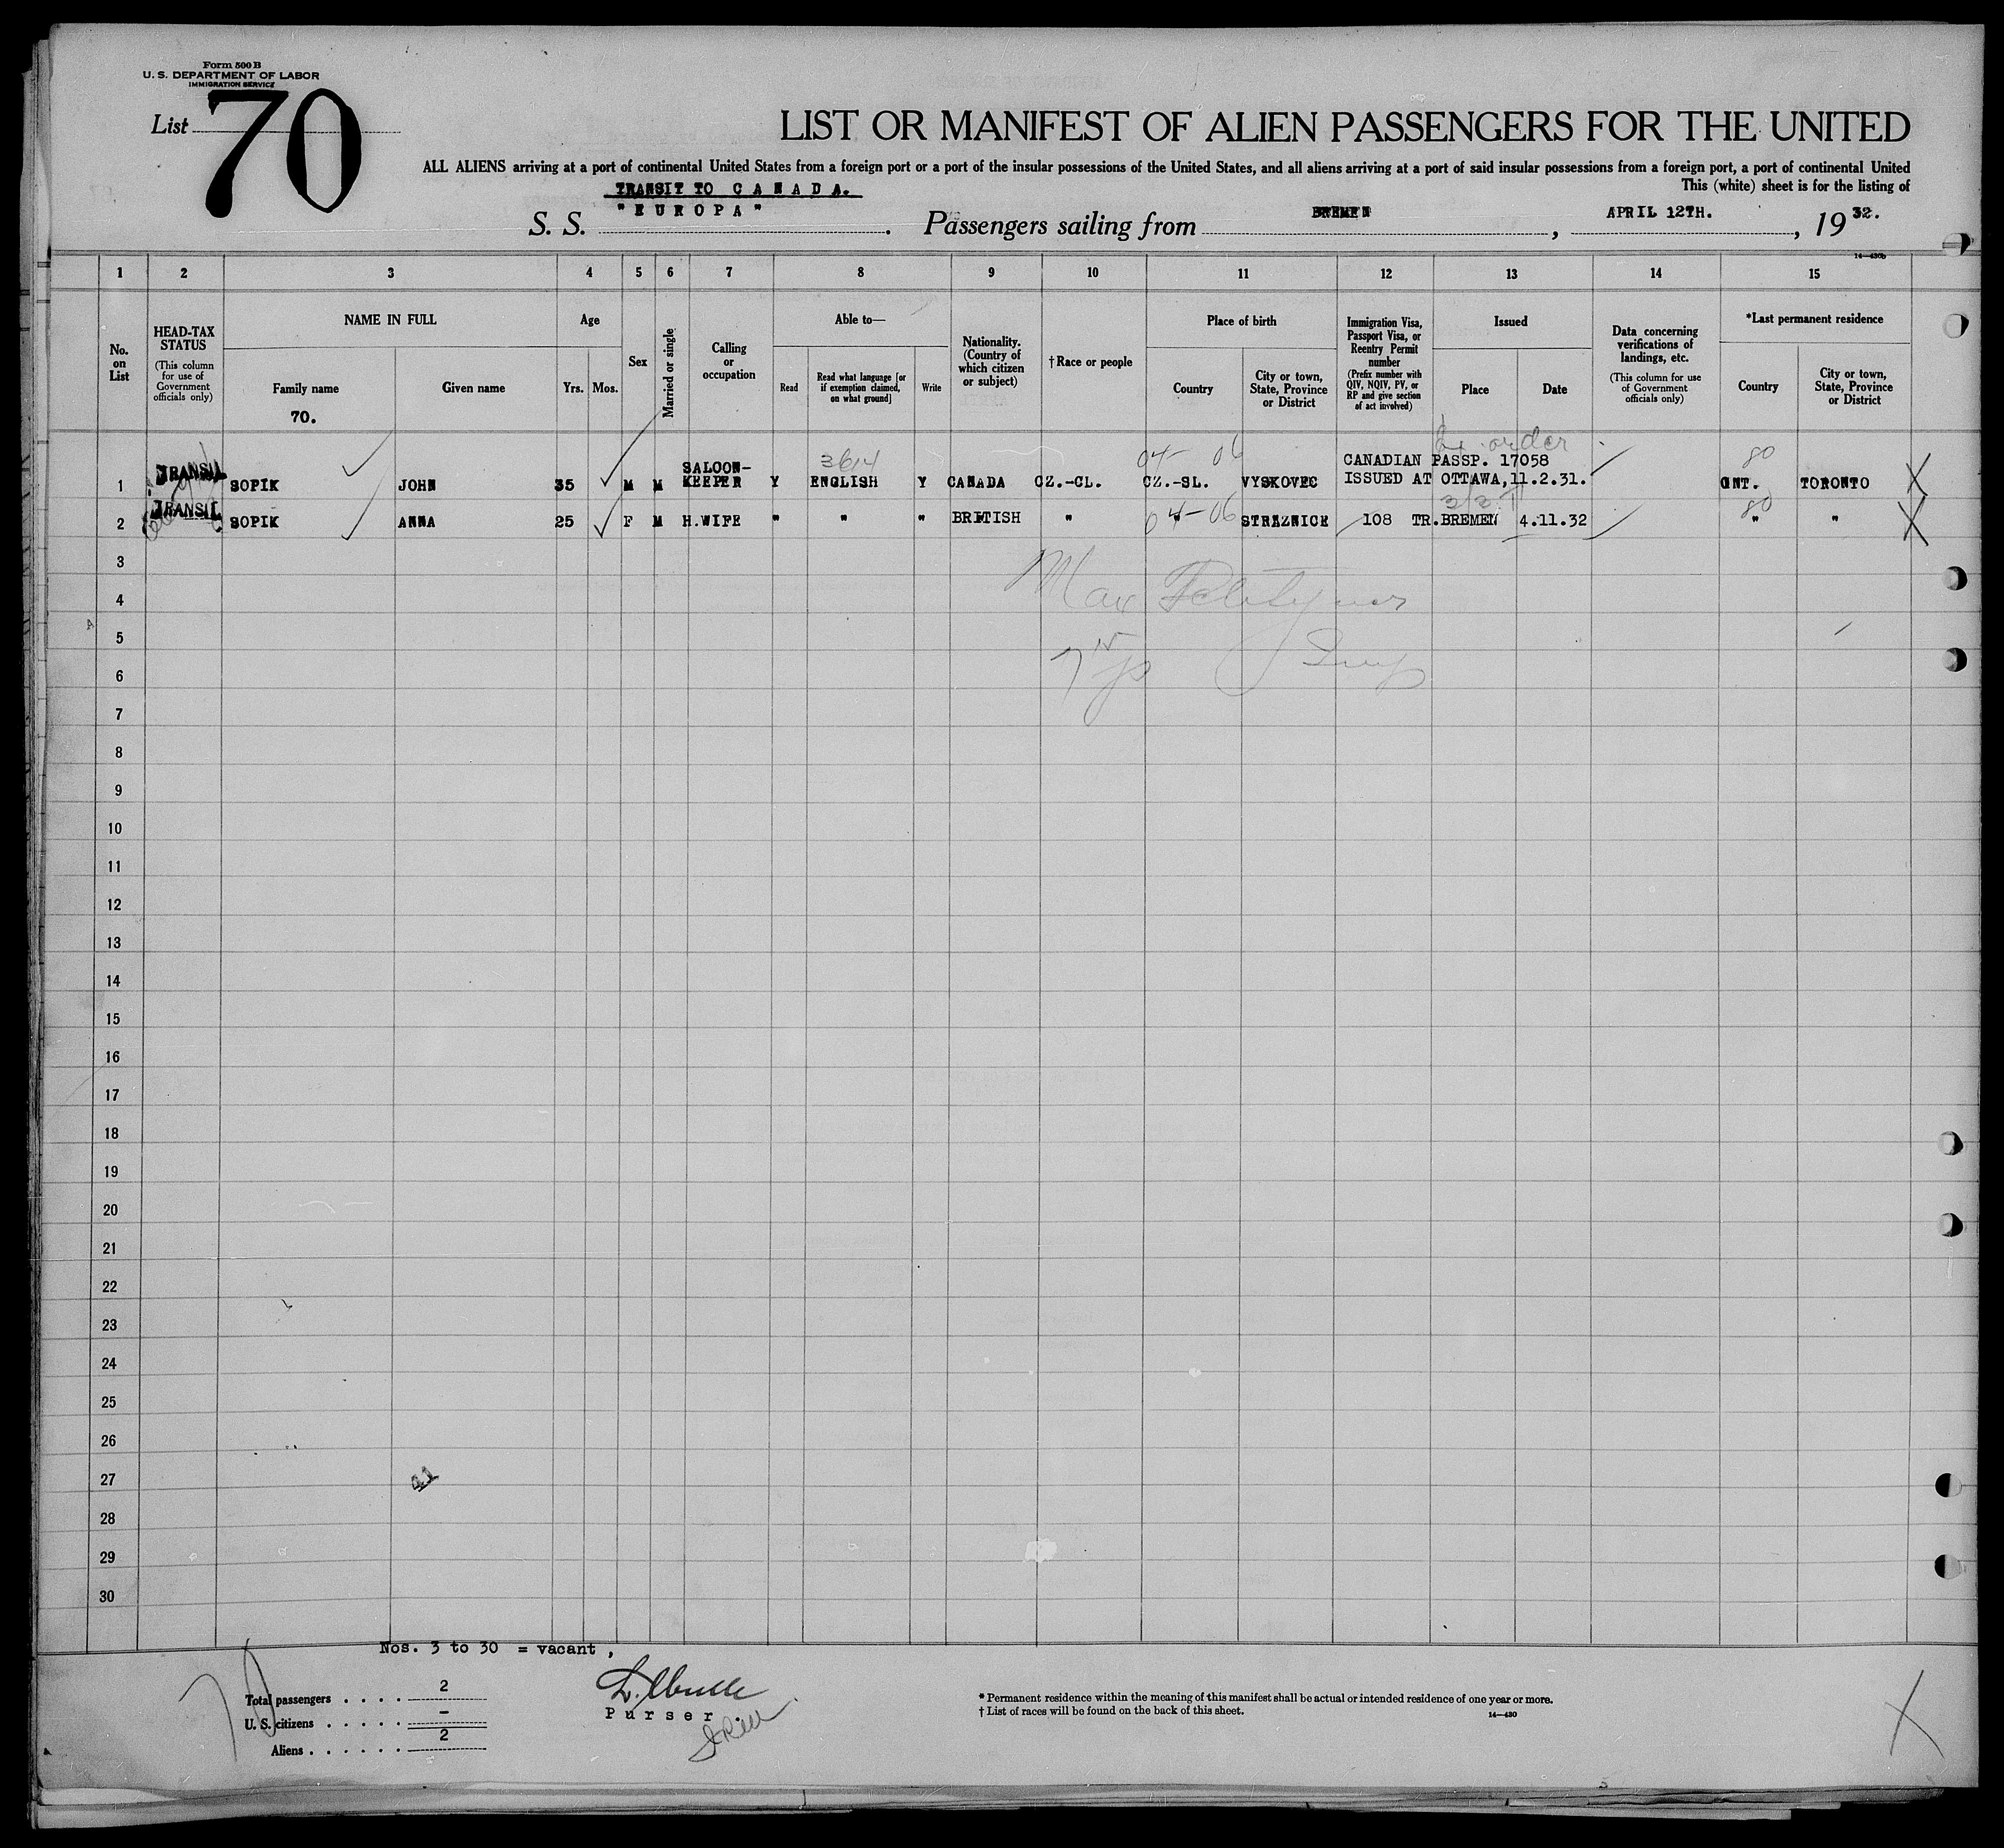 Form 500 B
U. S. DEPARTMENT OF LABOR
IMMIGRATION SERVICE
List 70
LIST OR MANIFEST OF ALIEN PASSENGERS FOR THE UNITED
ALL ALIENS arriving at a port of continental United States from a foreign port or a port of the insular possessions of the United States, and all aliens arriving at a port of said insular possessions from a foreign port, a port of continental United
This (white) sheet is for the listing of
TRANSIT TO CANADA.
S. S. "EUROPA". Passengers sailing from BREMEN, APRIL 12TH., 1932.
14—430b
1 2 3 4 5 6 7 8 9 10 11 12 13 14 15
No. on List
HEAD-TAX STATUS
(This column for use of Government officials only)
NAME IN FULL
Family name
70.
Given name
Age
Yrs. Mos.
Sex
Married or single
Calling or occupation
Able to—
Read
Read what language [or if exemption claimed, on what ground]
Write
Nationality. (Country of which citizen or subject)
† Race or people
Place of birth
Country
City or town, State, Province or District
Immigration Visa, Passport Visa, or Reentry Permit number
(Prefix number with QIV, NQIV, PV, or RP and give section of act involved)
Issued
Place
Date
Data concerning verifications of landings, etc.
(This column for use of Government officials only)
*Last permanent residence
Country
City or town, State, Province or District
order
3614 04- 06 80
1 TRANSIT SOPIK JOHN 35 M M SALOON-KEEPER Y ENGLISH Y CANADA CZ.-CL. CZ.-SL. VYSKOVEC CANADIAN PASSP. 17058 ISSUED AT OTTAWA,11.2.31. ONT. TORONTO X
04-06 80
2 TRANSIT SOPIK ANNA 25 F M H.WIFE " " " BRITISH " " STRAZNICE 108 TR.BREMEN 4.11.32 " " X
3
Max
4
5
6
7
8
9
10
11
12
13
14
15
16
17
18
19
20
21
22
23
24
25
26
27
28
29
30
Nos. 3 to 30 = vacant,
70
Total passengers . . . . 2
U. S. citizens . . . . . -
Aliens . . . . . . 2
Purser.
* Permanent residence within the meaning of this manifest shall be actual or intended residence of one year or more.
† List of races will be found on the back of this sheet.
14—430
X